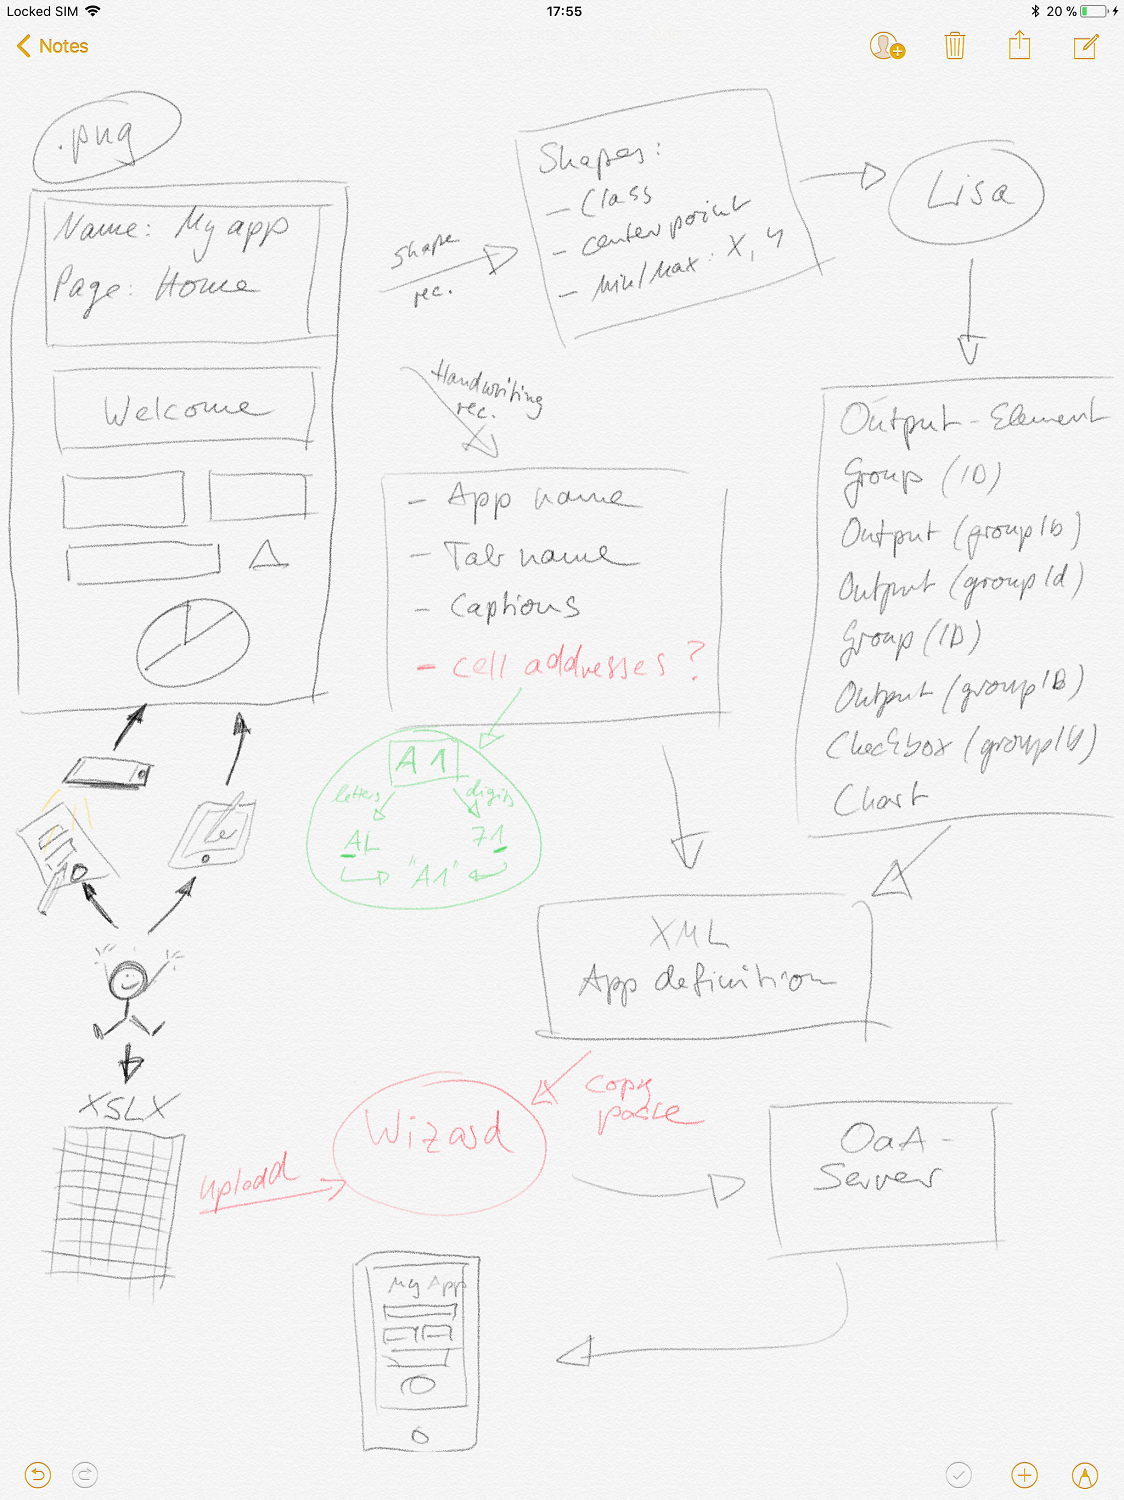 Locked SIM
17:55
20 %
Notes
.png
Name: My app
Page: Home
Welcome
shape
rec.
Shapes:
- Class
- center point
- Min/Max: X, y
Lisa
Handwriting
rec.
- App name
- Tab name
- Captions
- cell addresses ?
A1
letters
digits
AL
71
"A1"
Output-Element
Group (ID)
Output (groupId)
Output (groupId)
Group (ID)
Output (groupID)
Checkbox (groupId)
Chart
XML
App definition
copy
paste
XSLX
upload
Wizard
OaA-
Server
My App